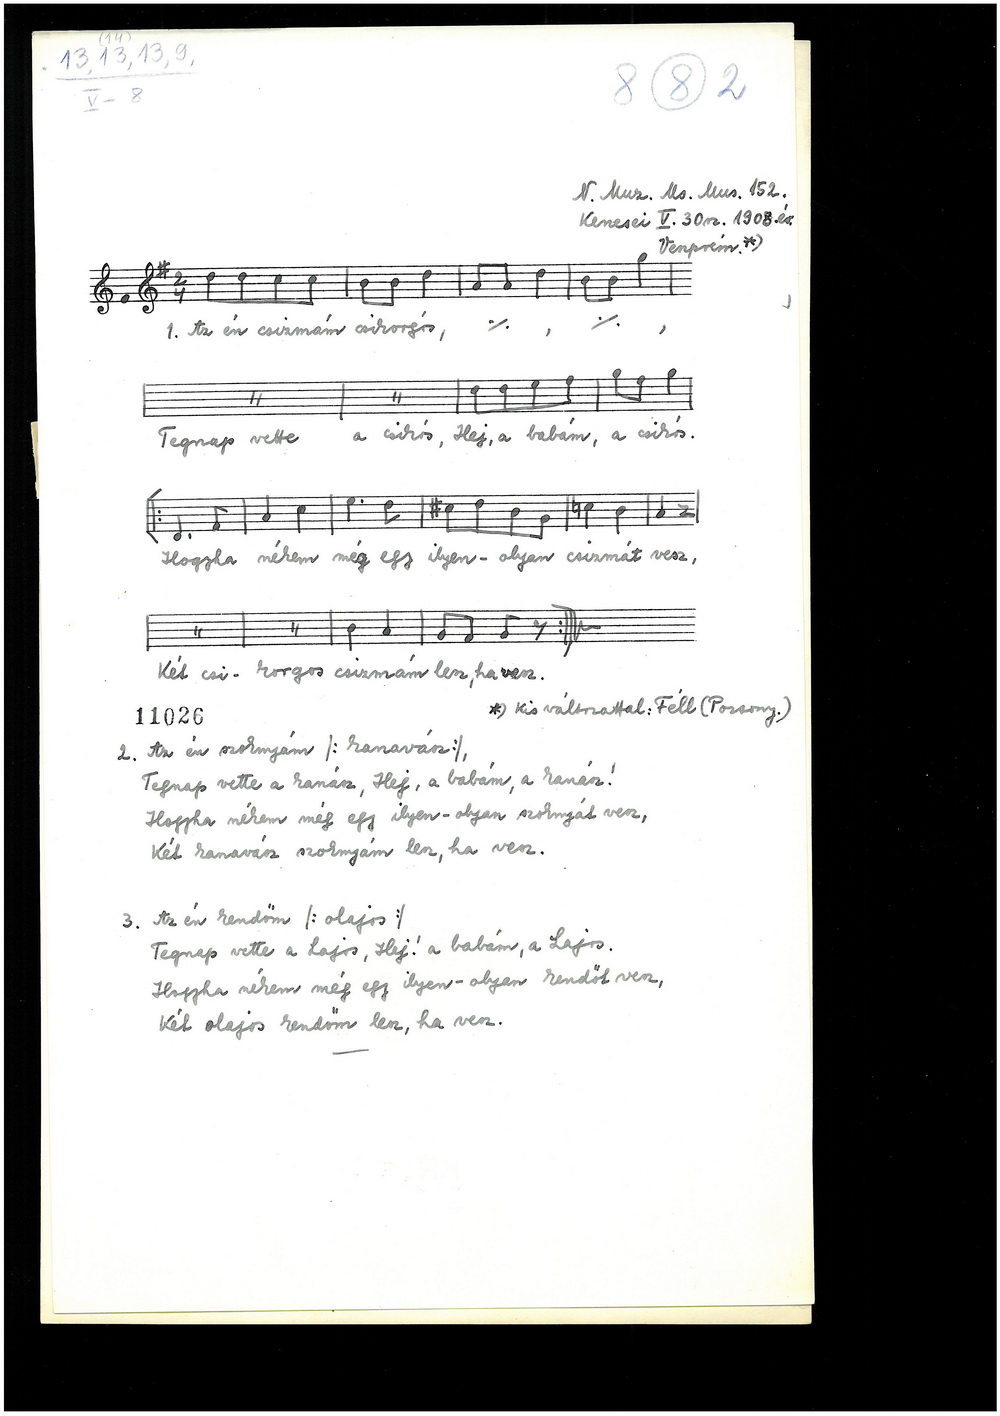 (14)
13, 13, 13, 9,
V - 8
8 8 2
N. Muz. Ms. Mus. 152.
Kenesei V. 30sz. 1908. és
Veszprém. *)
1. Az én csizmám csikorgós, ·/. , ·/. ,
Tegnap vette a csikós, Hej, a babám, a csikós.
Hogyha nékem még egy ilyen-olyan csizmát vesz,
Két csi- korgos csizmám lesz, ha vesz.
*) Kis változattal: Féll (Pozsony.)
11026
2. Az én szoknyám /: kanavász :/,
Tegnap vette a kanász, Hej, a babám, a kanász!
Hogyha nékem még egy ilyen-olyan szoknyát vesz,
Két kanavász szoknyám lesz, ha vesz.
3. Az én kendőm /: olajos :/
Tegnap vette a Lajos, Hej! a babám, a Lajos.
Hogyha nékem még egy ilyen-olyan kendőt vesz,
Két olajos kendőm lesz, ha vesz.